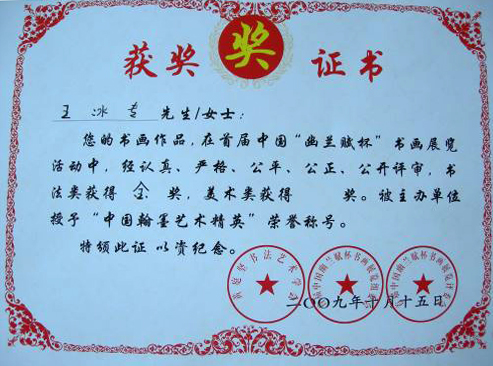 获奖 奖 证书
王 冰 先生/女士：
您的书画作品，在首届中国“幽兰赋杯”书画展览
活动中，经认真、严格、公平、公正、公开评审，书
法类获得 金 奖，美术类获得 奖。被主办单位
授予“中国翰墨艺术精英”荣誉称号。
特颁此证 以资纪念。
书法艺术学会
中国幽兰赋杯书画展览
中国幽兰赋杯书画展览
二〇〇九年十月十五日